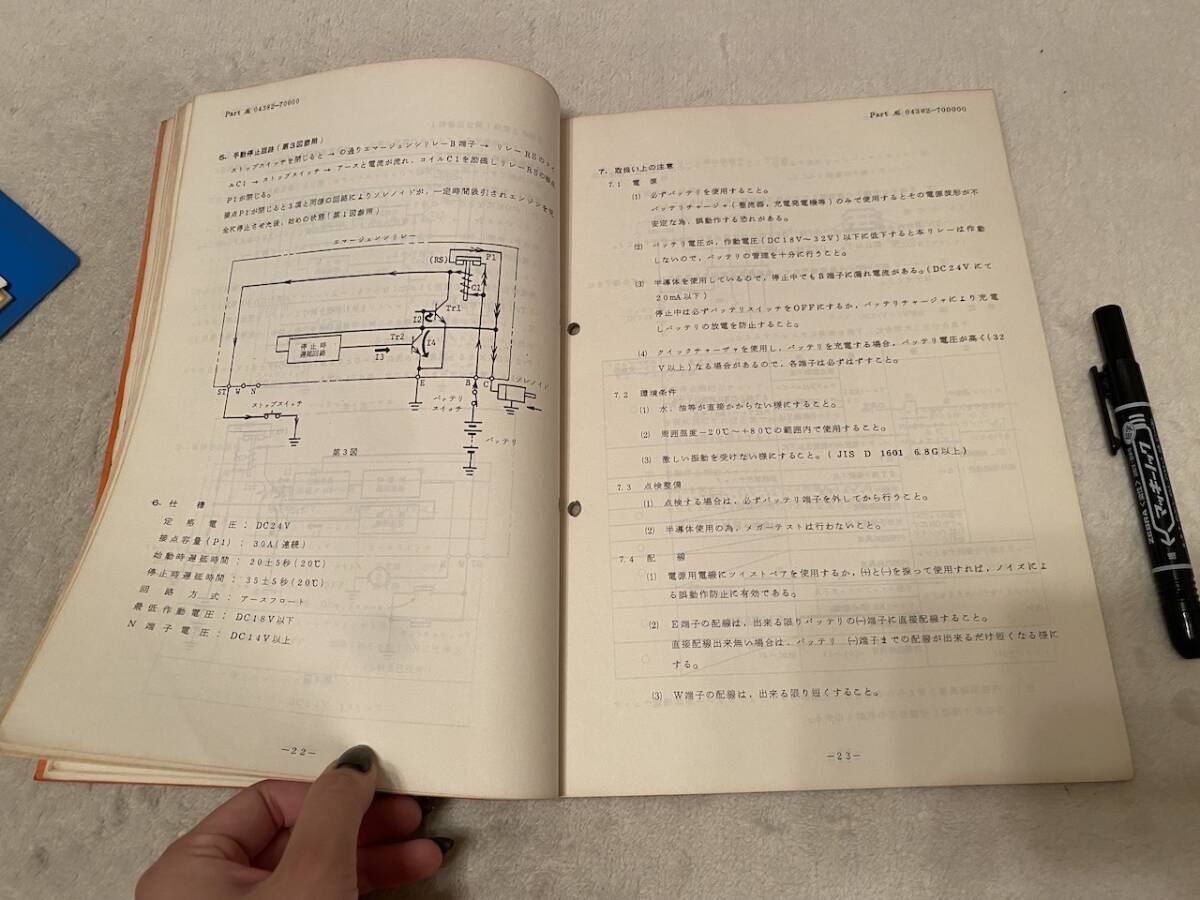 Part № 04382-70000
5. 手動停止回路(第3図参照)
ストップスイッチを閉じると→の通りエマージェンシリレーB端子→リレーRSのコイ
ルC1→ストップスイッチ→アースと電流が流れ、コイルC1を励磁しリレーRSの接点
P1が閉じる。
接点P1が閉じると3項と同様の回路によりソレノイドが、一定時間吸引されエンジンを完
全に停止させた後、始めの状態(第1図参照)
エマージェンシリレー
(RS)
P1
C1
Tr1
I2
Tr2
I4
停止時
遅延回路
I3
ST W N E B C ソレノイド
ストップスイッチ
バッテリ
スイッチ
バッテリ
第3図
6. 仕様
定格電圧: DC24V
接点容量(P1): 30A(連続)
始動時遅延時間: 20±5秒(20℃)
停止時遅延時間: 35±5秒(20℃)
回路方式: アースフロート
最低作動電圧: DC18V以下
N端子電圧: DC14V以上
-22-
Part № 04382-700000
7. 取扱い上の注意
7.1 電源
(1) 必ずバッテリを使用すること。
バッテリチャージャ(整流器,充電発電機等)のみで使用するとその電源波形が不
安定な為、誤動作する恐れがある。
(2) バッテリ電圧が,作動電圧(DC18V~32V)以下に低下すると本リレーは作動
しないので,バッテリの管理を十分に行うこと。
(3) 半導体を使用しているので,停止中でもB端子に漏れ電流がある。(DC24Vにて
20mA以下)
停止中は必ずバッテリスイッチをOFFにするか,バッテリチャージャにより充電
しバッテリの放電を防止すること。
(4) クイックチャーヂャを使用し,バッテリを充電する場合,バッテリ電圧が高く(32
V以上)なる場合があるので,各端子は必ずはずすこと。
7.2 環境条件
(1) 水,油等が直接かからない様にすること。
(2) 周囲温度-20℃~+80℃の範囲内で使用すること。
(3) 激しい振動を受けない様にすること。(JIS D 1601 6.8G以上)
7.3 点検整備
(1) 点検する場合は,必ずバッテリ端子を外してから行うこと。
(2) 半導体使用の為,メガーテストは行わないこと。
7.4 配線
(1) 電源用電線にツイストペアを使用するか,(+)と(-)を撚って使用すれば,ノイズによ
る誤動作防止に有効である。
(2) E端子の配線は,出来る限りバッテリの(-)端子に直接配線すること。
直接配線出来無い場合は,バッテリ (-)端子までの配線が出来るだけ短くなる様に
する。
(3) W端子の配線は,出来る限り短くすること。
-23-
マッキーケア
ZEBRA